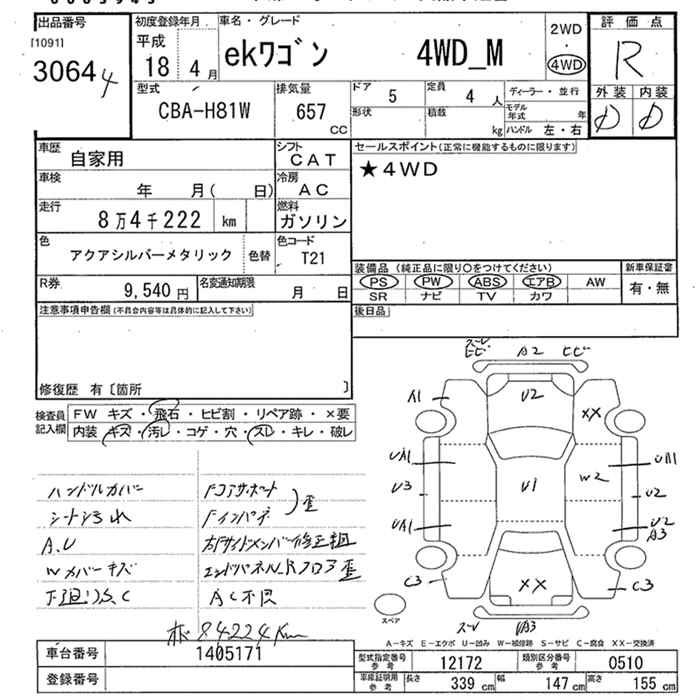 出品番号
[1091]
3064 4
初度登録年月
平成
18 年 4 月
車名・グレード
ekワゴン 4WD_M
2WD
・
4WD
評価点
R
外装 内装
型式
CBA-H81W
排気量
657
CC
ドア
5
形状
定員
4 人
積載
kg
ディーラー・並行
モデル年式 年
ハンドル 左・右
車歴
自家用
シフト
CAT
車検
年 月( 日)
冷房
AC
走行
8万4千222 km
燃料
ガソリン
色
アクアシルバーメタリック 色替
色コード
T21
R券
9,540 円
名変通知期限
月 日
セールスポイント(正常に機能するものに限ります)
★4WD
装備品 (純正品に限り○をつけてください)
PS PW ABS エアB AW
SR ナビ TV カワ
新車保証書
有・無
後日品
注意事項申告欄(不具合内容等は具体的に記入して下さい)
修復歴 有〔箇所 〕
検査員記入欄
FW キズ・飛石・ヒビ割・リペア跡・×要
内装 キズ・汚レ・コゲ・穴・スレ・キレ・破レ
ハンドルカバー
シート汚れ
A.U
Wカバーキズ
下廻りS,C
Fコアサポート
Fインパネ
歪
右Fサイドメンバー修正粗
エンドパネル,Rフロア歪
AC不良
板84224Km
ズレ
ヒビ A2 ヒビ
A1
U2
XX
UA1
U1
W2
UA1
U3
U2
UA1
U2
A3
C3
XX
C3
ズレ UA3
スペア
A-キズ E-エクボ U-凹み W-補修跡 S-サビ C-腐食 XX-交換済
車台番号 1405171
登録番号
型式指定番号
参考
12172
類別区分番号
参考
0510
車庫証明用
参考
長さ 339 cm 幅 147 cm 高さ 155 cm